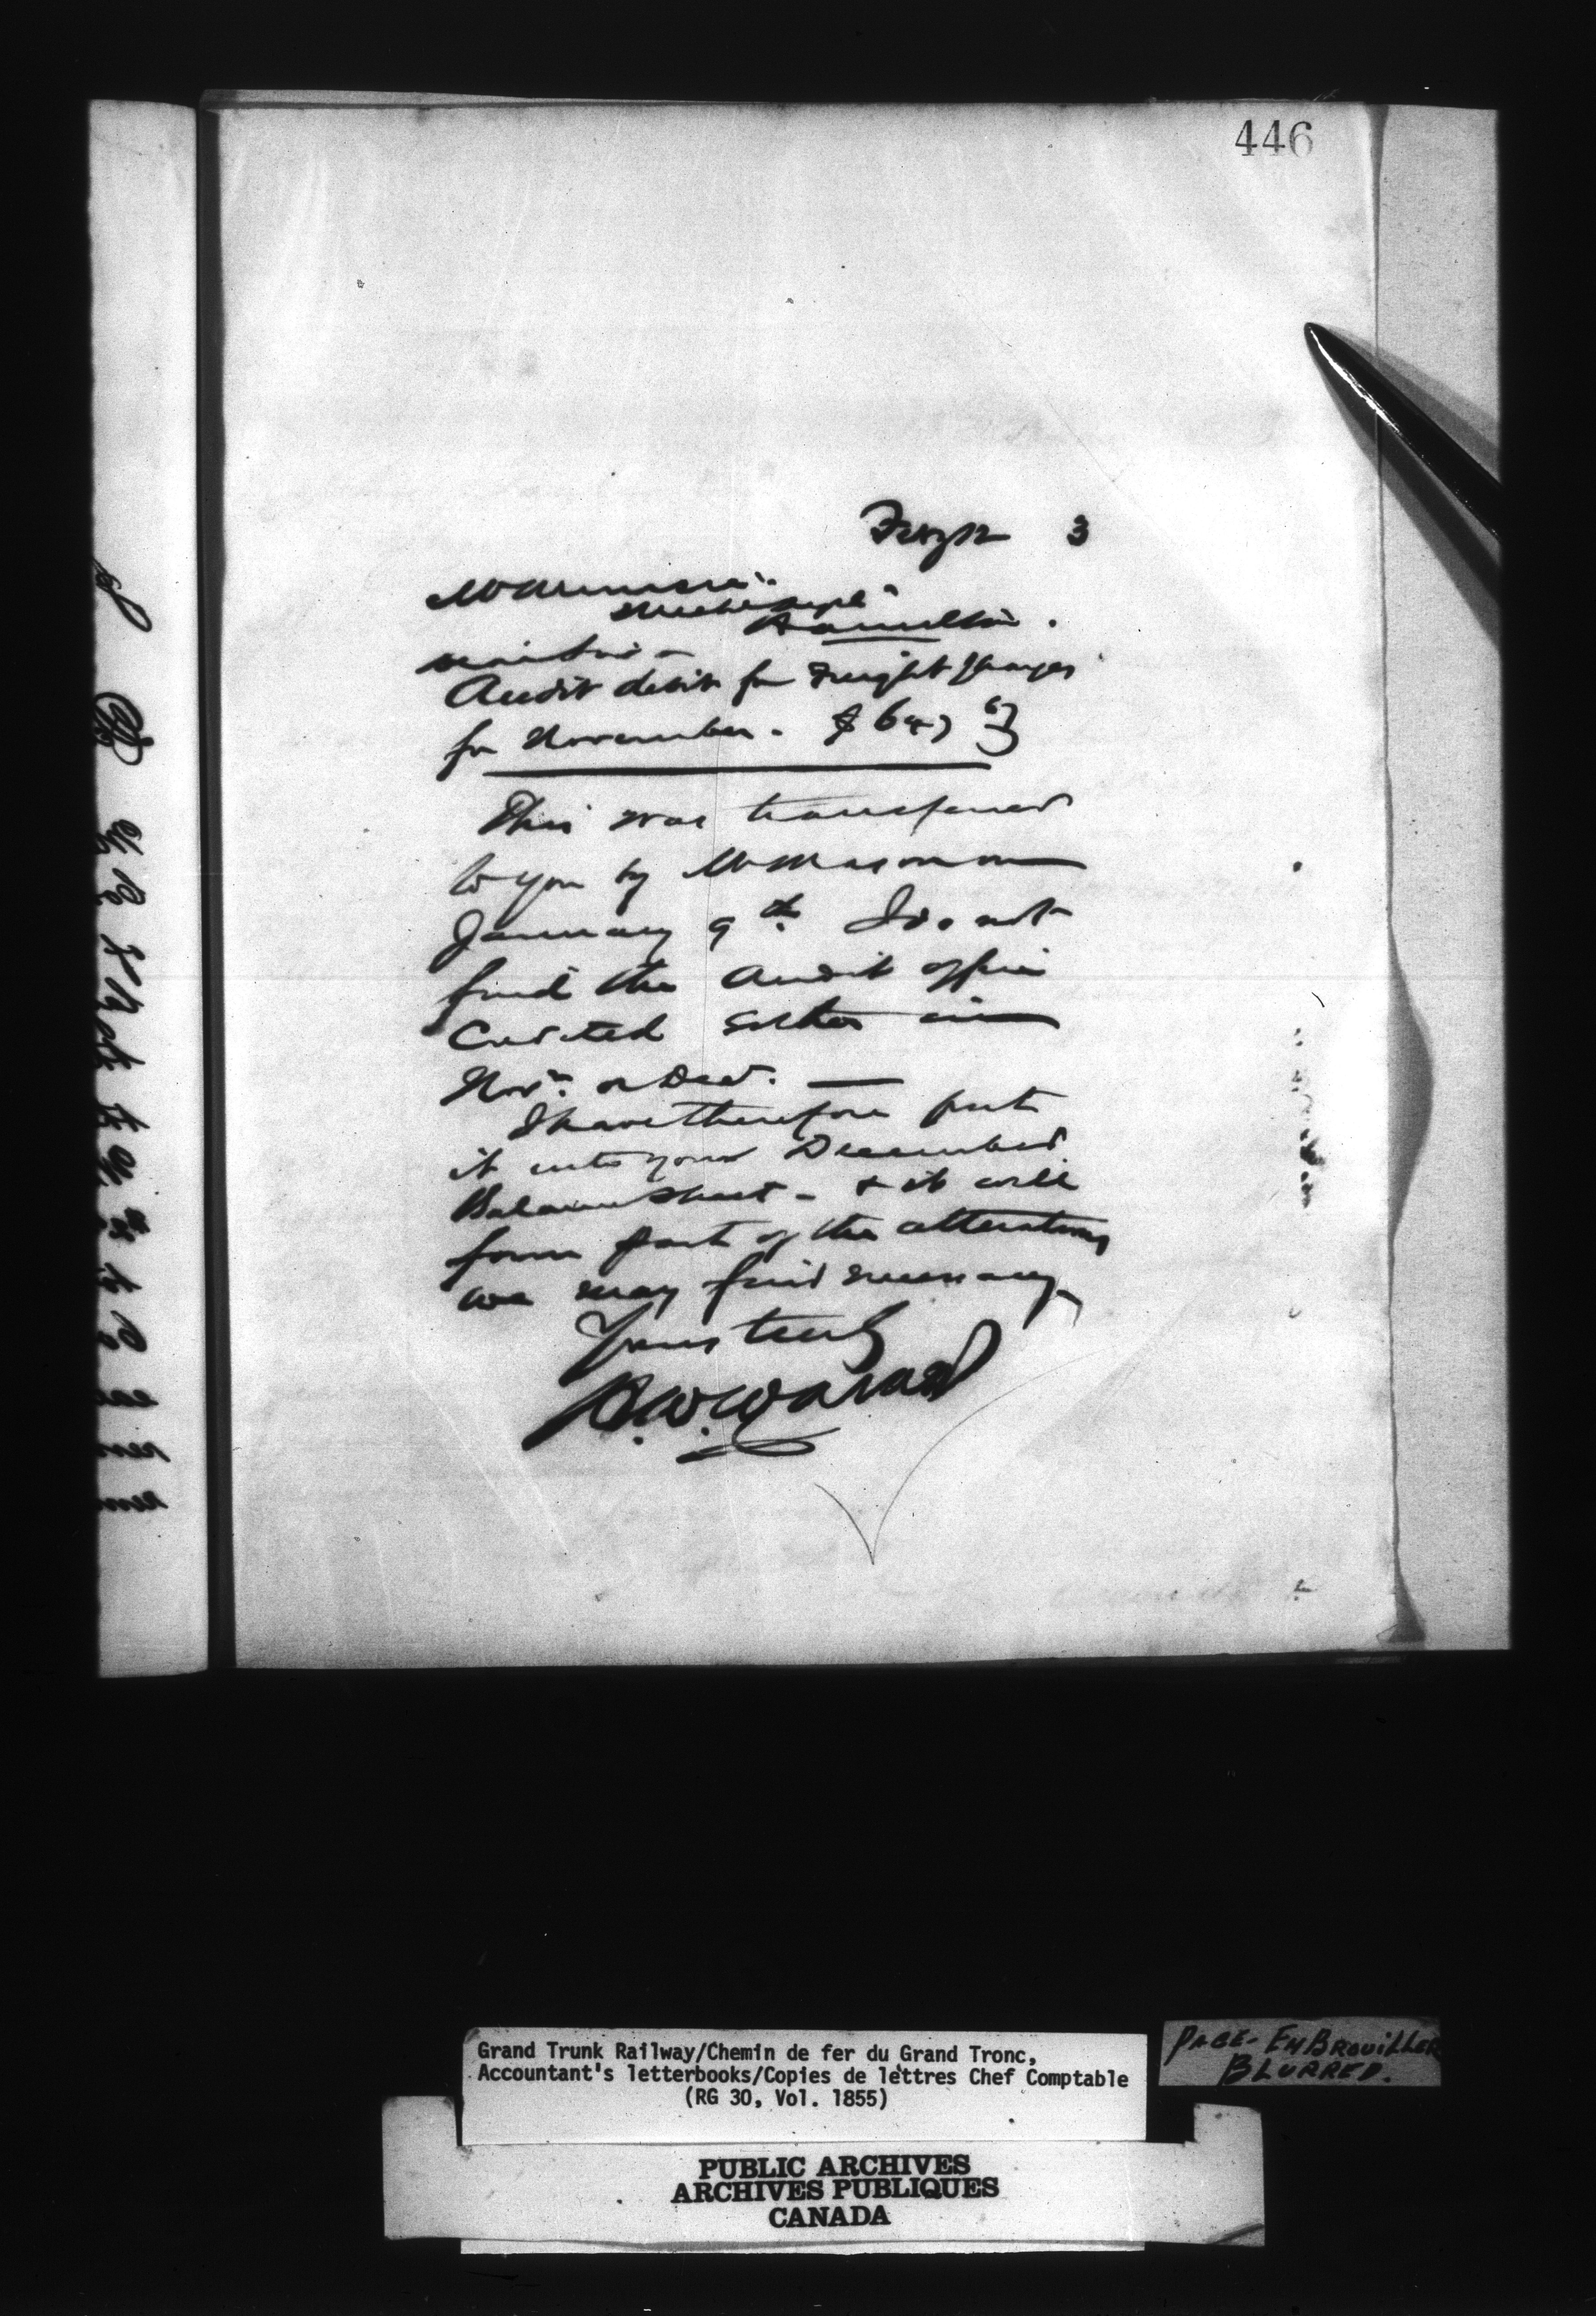 446
3
Hamilton.
Audit debit for Freight Charges
for November. $
This was transferred
to you by Mr
January 9th. I do not
find the Audit office
Credited either in
Novr. or Decr. —
I have therefore put
it into your December
Balance Sheet - & it will
form part of the alterations
we may find necessary
Yours truly
Grand Trunk Railway/Chemin de fer du Grand Tronc,
Accountant's letterbooks/Copies de lettres Chef Comptable
(RG 30, Vol. 1855)
PAGE - EMBROUILLER
BLURRED.
PUBLIC ARCHIVES
ARCHIVES PUBLIQUES
CANADA